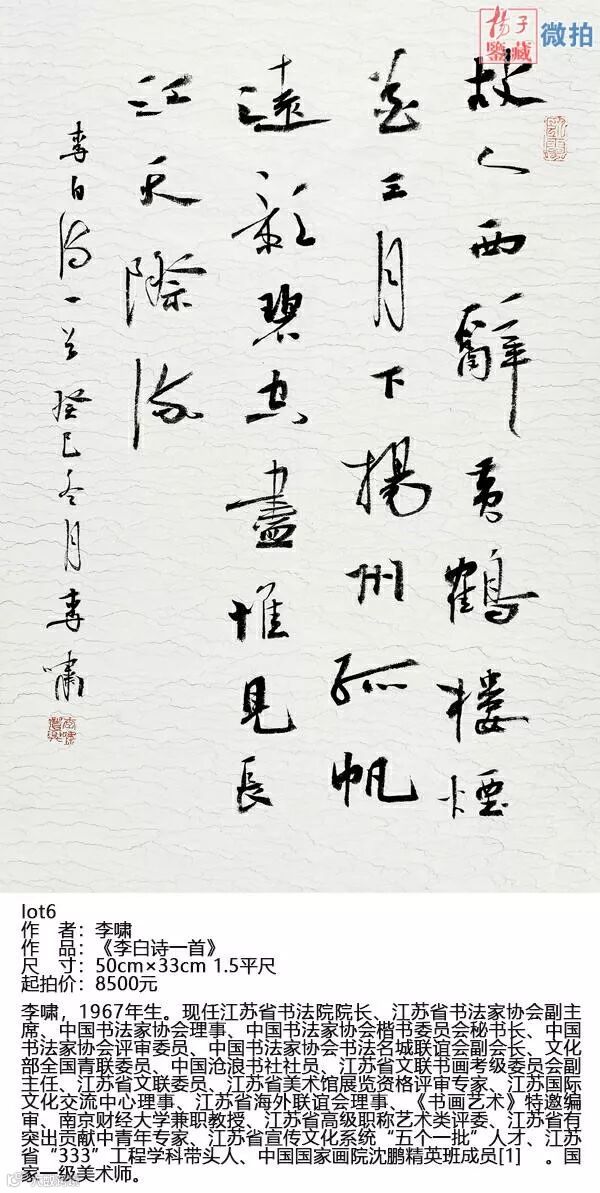 揚子
鑒藏
微拍
故人西辭黄鶴樓煙
花三月下揚州孤帆
遠影碧空盡惟見長
江天際流
李白詩一首癸巳冬月李嘯
lot6
作 者：李啸
作 品：《李白诗一首》
尺 寸：50cm×33cm 1.5平尺
起拍价：8500元
李啸，1967年生。现任江苏省书法院院长、江苏省书法家协会副主
席、中国书法家协会理事、中国书法家协会楷书委员会秘书长、中国
书法家协会评审委员、中国书法家协会书法名城联谊会副会长、文化
部全国青联委员、中国沧浪书社社员、江苏省文联书画考级委员会副
主任、江苏省文联委员、江苏省美术馆展览资格评审专家、江苏国际
文化交流中心理事、江苏省海外联谊会理事、《书画艺术》特邀编
审、南京财经大学兼职教授、江苏省高级职称艺术类评委、江苏省有
突出贡献中青年专家、江苏省宣传文化系统“五个一批”人才、江苏
省“333”工程学科带头人、中国国家画院沈鹏精英班成员[1] 。国
家一级美术师。